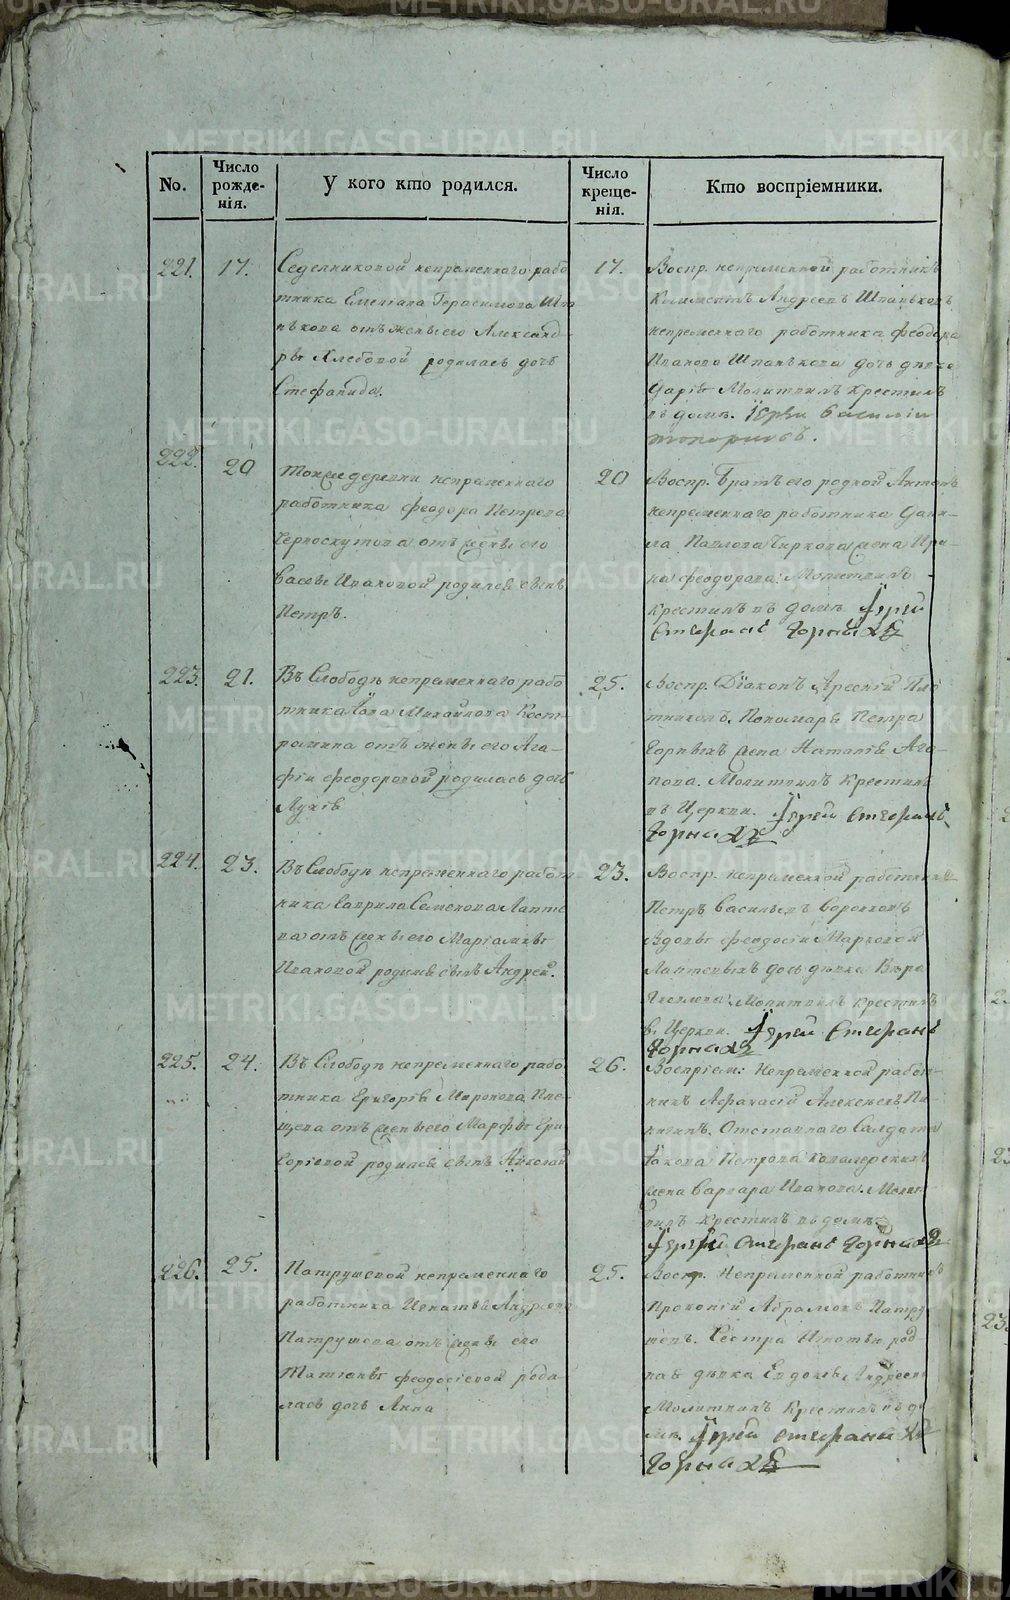 No.
Число рожде-нія.
У кого кто родился.
Число креще-нія.
Кто воспріемники.
221.
17.
Седелниковой непременнаго рабо
тника Емелiана Герасимова Шпа
нькова отъ жены его Александ-
ры Хлебовой родилась дочь
Стефанида.
17.
Воспр. непременной работникъ
Климентъ Андреевъ Шпаньковъ
непременнаго работника Феодора
Иванова Шпанькова дочь дѣвка
Дарья Молитвилъ Крестилъ
въ домѣ. Іерей Василiй
Топорковъ.
222.
20
Тоиже деревни непременнаго
работника Феодора Петрова
Черноскутова отъ жены его
Вассы Ивановой родился сынъ
Петръ.
20
Воспр. Братъ его родной Антонъ
непременнаго работника Дани-
ла Павлова Чиркова жена Ири-
на Феодорова: Молитвилъ
Крестилъ въ домѣ Іерей
Стефанъ Горныхъ
223.
21.
Въ Слободѣ непременнаго рабо
тника Іова Михайлова Кост-
ромина отъ жены его Ага-
фiи Феодоровой родилась дочь
Лукiя
25.
Воспр. Дiаконъ Арсенiй Пло
тниковъ, Пономаря Петра
Горныхъ жена Наталiя Ага-
пова. Молитвилъ Крестилъ
въ Церкви. Іерей Стефанъ
Горныхъ
224.
23.
Въ Слободѣ непременнаго работ
ника Гаврила Семенова Лапте
ва отъ жены его Марiамны
Ивановой родился сынъ Андрей.
23.
Воспр. непременной работникъ
Петръ Васильевъ Воронковъ
вдовы Феодосiи Марковой
Лаптевыхъ дочь дѣвка Вѣра
Яковлева: Молитвилъ Крестилъ
въ Церкви. Іерей Стефанъ
Горныхъ
225.
24.
Въ Слободѣ непременнаго рабо
тника Григорiя Миронова Пле-
щева отъ жены его Марфы Гри
горiевой родился сынъ Николай
26.
Воспрiем: Непременной работ-
никъ Афанасiй Алексѣевъ Ни
китинъ. Отставнаго Салдата
Іакова Петрова
жена Варвара Иванова. Молит-
вилъ Крестилъ въ домѣ.
Іерей Стефанъ Горныхъ
226.
25.
Патрушевой непременнаго
работника Игнатiя Андреева
Патрушева отъ жены его
Татiаны Феодосiевой роди
лась дочь Анна
25.
Воспр. Непременной работникъ
Прокопiй Абрамовъ Патру
шевъ. Сестра Игнатья род
ная дѣвка Евдокiя Андреева
Молитвилъ Крестилъ въ до
мѣ. Іерей Стефанъ
Горныхъ
METRIKI.GASO-URAL.RU